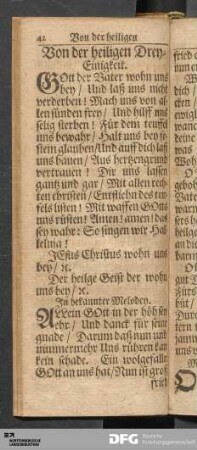 42 Von der heiligen
Von der heiligen Drey-
Einigkeit.
GOtt der Vater wohn uns
bey / Und laß uns nicht
verderben! Mach uns von al-
len sünden frey / Und hilff uns
selig sterben! Für dem teuffl
uns bewahr / Halt uns bey fe-
stem glauben / Und auff dich laß
uns bauen / Aus hertzengrund
vertrauen! Dir uns lassen
gantz und gar / Mit allen rech-
ten christen / Entfliehn des teu-
fels listen! Mit waffen Gotts
uns rüsten! Amen! amen! das
sey wahr: So singen wir Hal-
leluia!
JEsus Christus wohn uns
bey / ꝛc.
Der heilge Geist der wohn
uns bey / ꝛc.
In bekannter Melodey.
ALlein GOtt in der höh sey
ehr / Und danck für seine
gnade / Darum daß nun und
nimmermehr Uns rühren kan
kein schade. Ein wolgefalln
GOtt an uns hat / Nun ist groß
fried
DFG Deutsche
Forschungsgemeinschaft